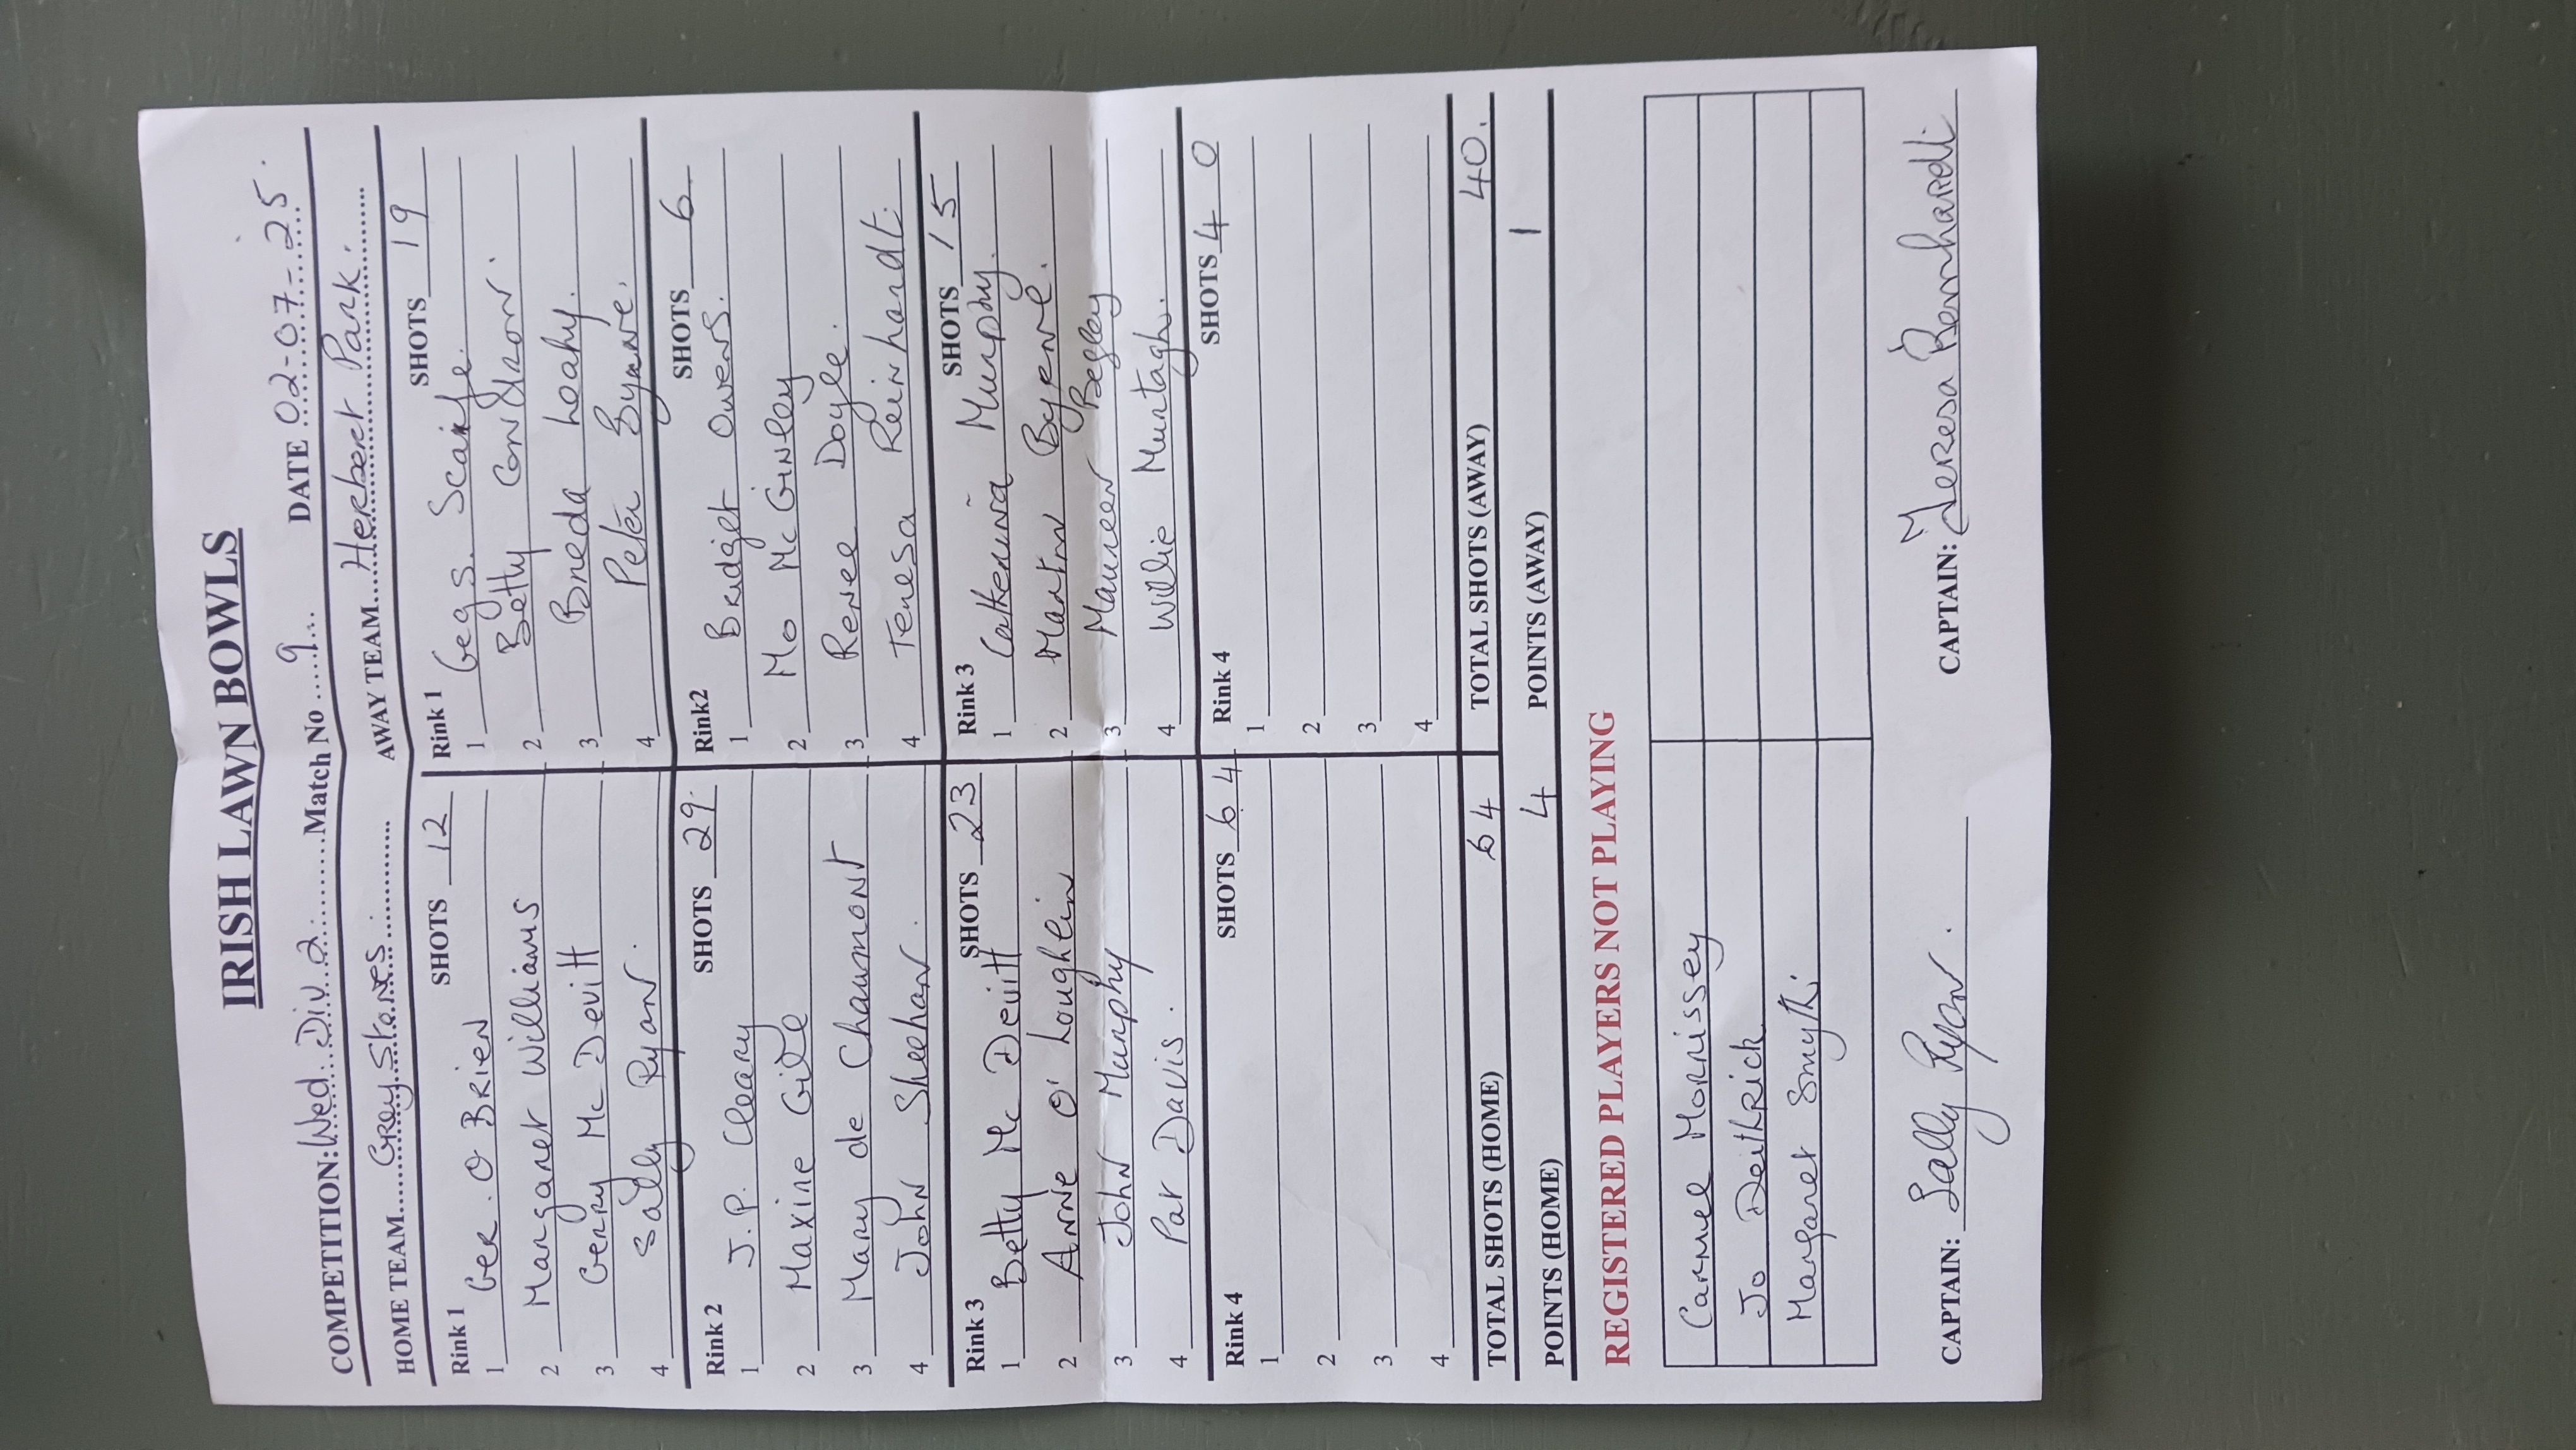 IRISH LAWN BOWLS
COMPETITION: Wed. Div. 2 Match No 9 DATE 02-07-25.
HOME TEAM Greystones. AWAY TEAM Herbert Park.
Rink 1 SHOTS 12 Rink 1 SHOTS 19
1 Ger. O Brien 1 Scaife.
2 Margaret Williams 2 Betty Condron.
3 Gerry Mc Devitt 3 Breda Leahy.
4 Sally Ryan. 4 Peter Byrne.
Rink 2 SHOTS 29. Rink2 SHOTS 6
1 J.P. Cleary 1 Bridget Owens.
2 Maxine Gill 2 Mo McGinley
3 Mary de Chaumont 3 Renee Doyle.
4 John Sheehan. 4 Teresa Reinhardt.
Rink 3 SHOTS 23 Rink 3 SHOTS 15
1 Betty Mc Devitt 1 Catherina Murphy.
2 Anne O' Loughlin 2 Martin Byrne.
3 John Murphy 3 Maureen Begley
4 Pat Davis. 4 Willie Murtagh.
Rink 4 SHOTS 64 Rink 4 SHOTS 40
1 1
2 2
3 3
4 4
TOTAL SHOTS (HOME) 64 TOTAL SHOTS (AWAY) 40.
POINTS (HOME) 4 POINTS (AWAY) 1
REGISTERED PLAYERS NOT PLAYING
Carmel Morrissey
Jo Deithrick
Margaret Smyth.
CAPTAIN: Sally Ryan. CAPTAIN: Teresa Reinhardt.